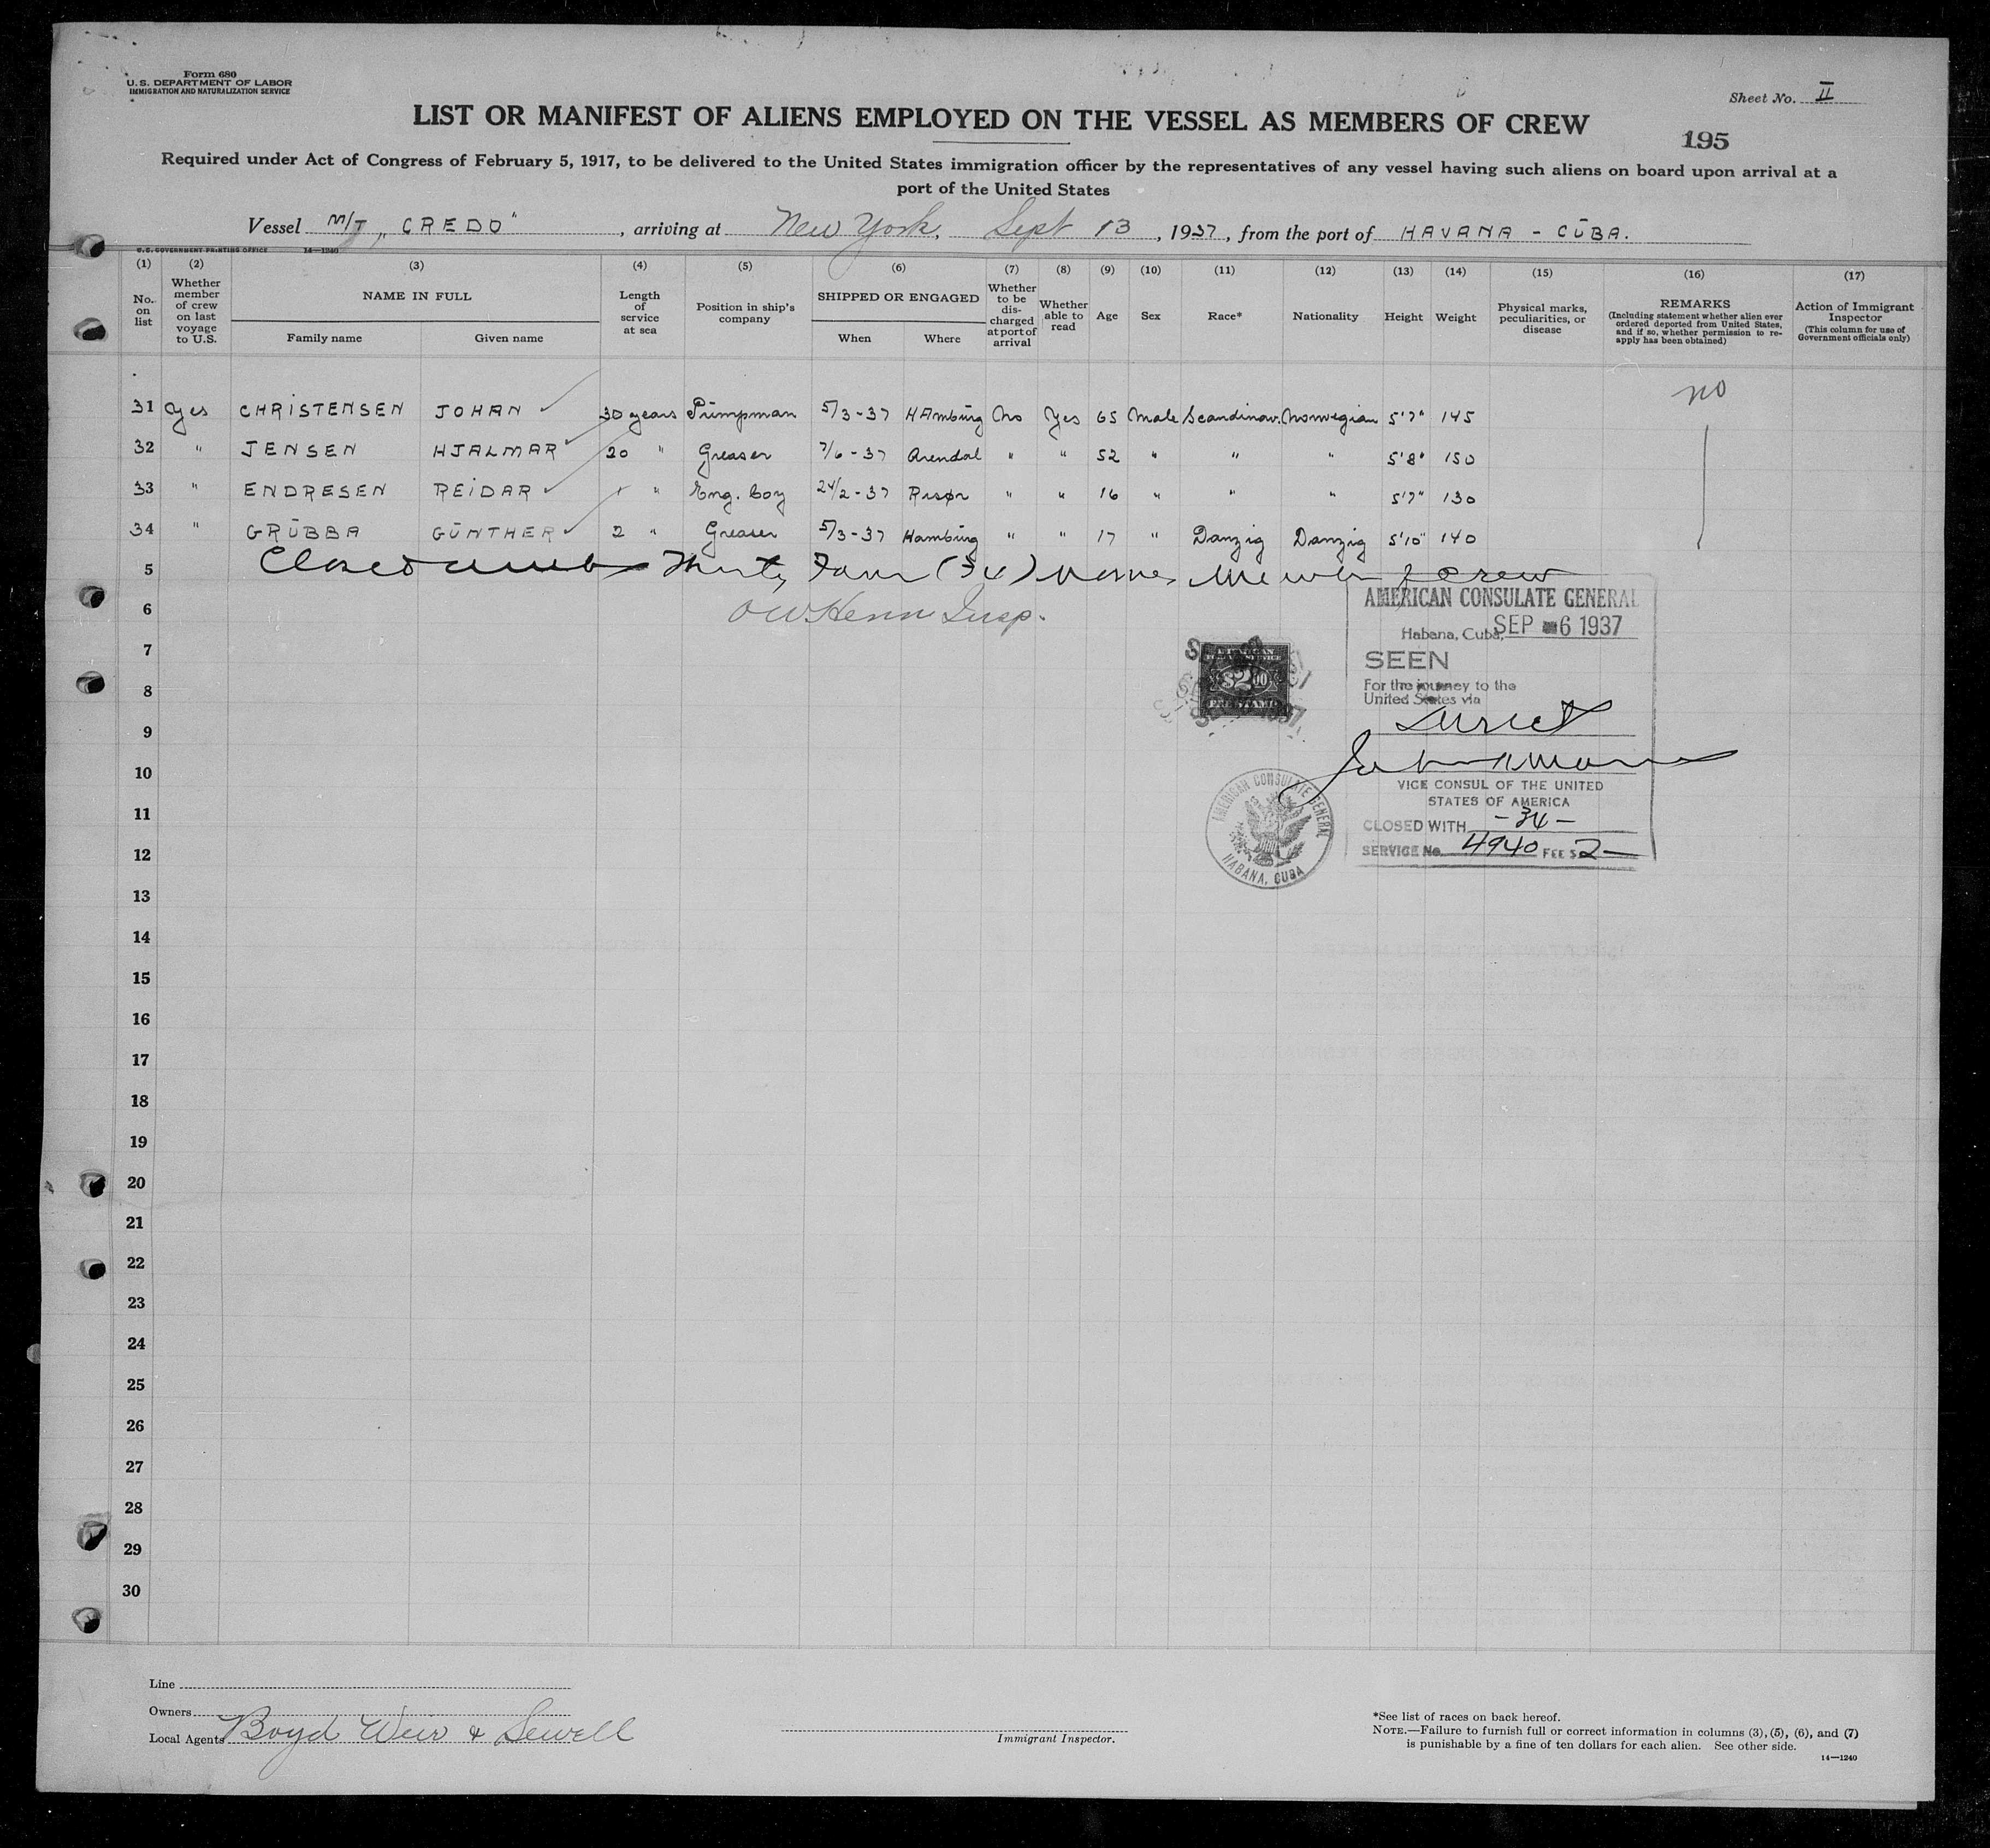 Form 680
U. S. DEPARTMENT OF LABOR
IMMIGRATION AND NATURALIZATION SERVICE
Sheet No. II
LIST OR MANIFEST OF ALIENS EMPLOYED ON THE VESSEL AS MEMBERS OF CREW
195
Required under Act of Congress of February 5, 1917, to be delivered to the United States immigration officer by the representatives of any vessel having such aliens on board upon arrival at a
port of the United States
Vessel M/T „CREDO“, arriving at New York, Sept 13, 1937, from the port of HAVANA - CŪBA.
U. S. GOVERNMENT PRINTING OFFICE 14—1240
(1) (2) (3) (4) (5) (6) (7) (8) (9) (10) (11) (12) (13) (14) (15) (16) (17)
No. on list
Whether member of crew on last voyage to U.S.
NAME IN FULL
Family name Given name
Length of service at sea
Position in ship's company
SHIPPED OR ENGAGED
When Where
Whether to be discharged at port of arrival
Whether able to read
Age
Sex
Race*
Nationality
Height
Weight
Physical marks, peculiarities, or disease
REMARKS
(Including statement whether alien ever ordered deported from United States, and if so, whether permission to reapply has been obtained)
Action of Immigrant Inspector
(This column for use of Government officials only)
no
31 Yes CHRISTENSEN JOHAN 30 years Pūmpman 5/3-37 HAmbūrg No Yes 65 Male Scandinav. Norwegian 5'7" 145
32 " JENSEN HJALMAR 20 " Greaser 7/6-37 Arendal " " 52 " " " 5'8" 150
33 " ENDRESEN REIDAR 1 " Eng. boy 24/2-37 Risør " " 16 " " " 5'7" 130
34 " GRŪBBA GÜNTHER 2 " Greaser 5/3-37 Hambūrg " " 17 " Danzig Danzig 5'10" 140
5 Closed Thirty Four (34) Names Member of Crew
6
7
8
9
10
11
12
13
14
15
16
17
18
19
20
21
22
23
24
25
26
27
28
29
30
AMERICAN CONSULATE GENERAL
Habana, Cuba, SEP 6 1937
SEEN
For the journey to the
United States via
VICE CONSUL OF THE UNITED
STATES OF AMERICA
CLOSED WITH -34-
SERVICE No. 4940 FEE $2—
$2.00
FEE STAMP
AMERICAN CONSULATE GENERAL
HABANA, CUBA
Line
Owners
Local Agents Boyd Weir & Sewell
Immigrant Inspector.
*See list of races on back hereof.
NOTE.—Failure to furnish full or correct information in columns (3), (5), (6), and (7)
is punishable by a fine of ten dollars for each alien. See other side.
14—1240